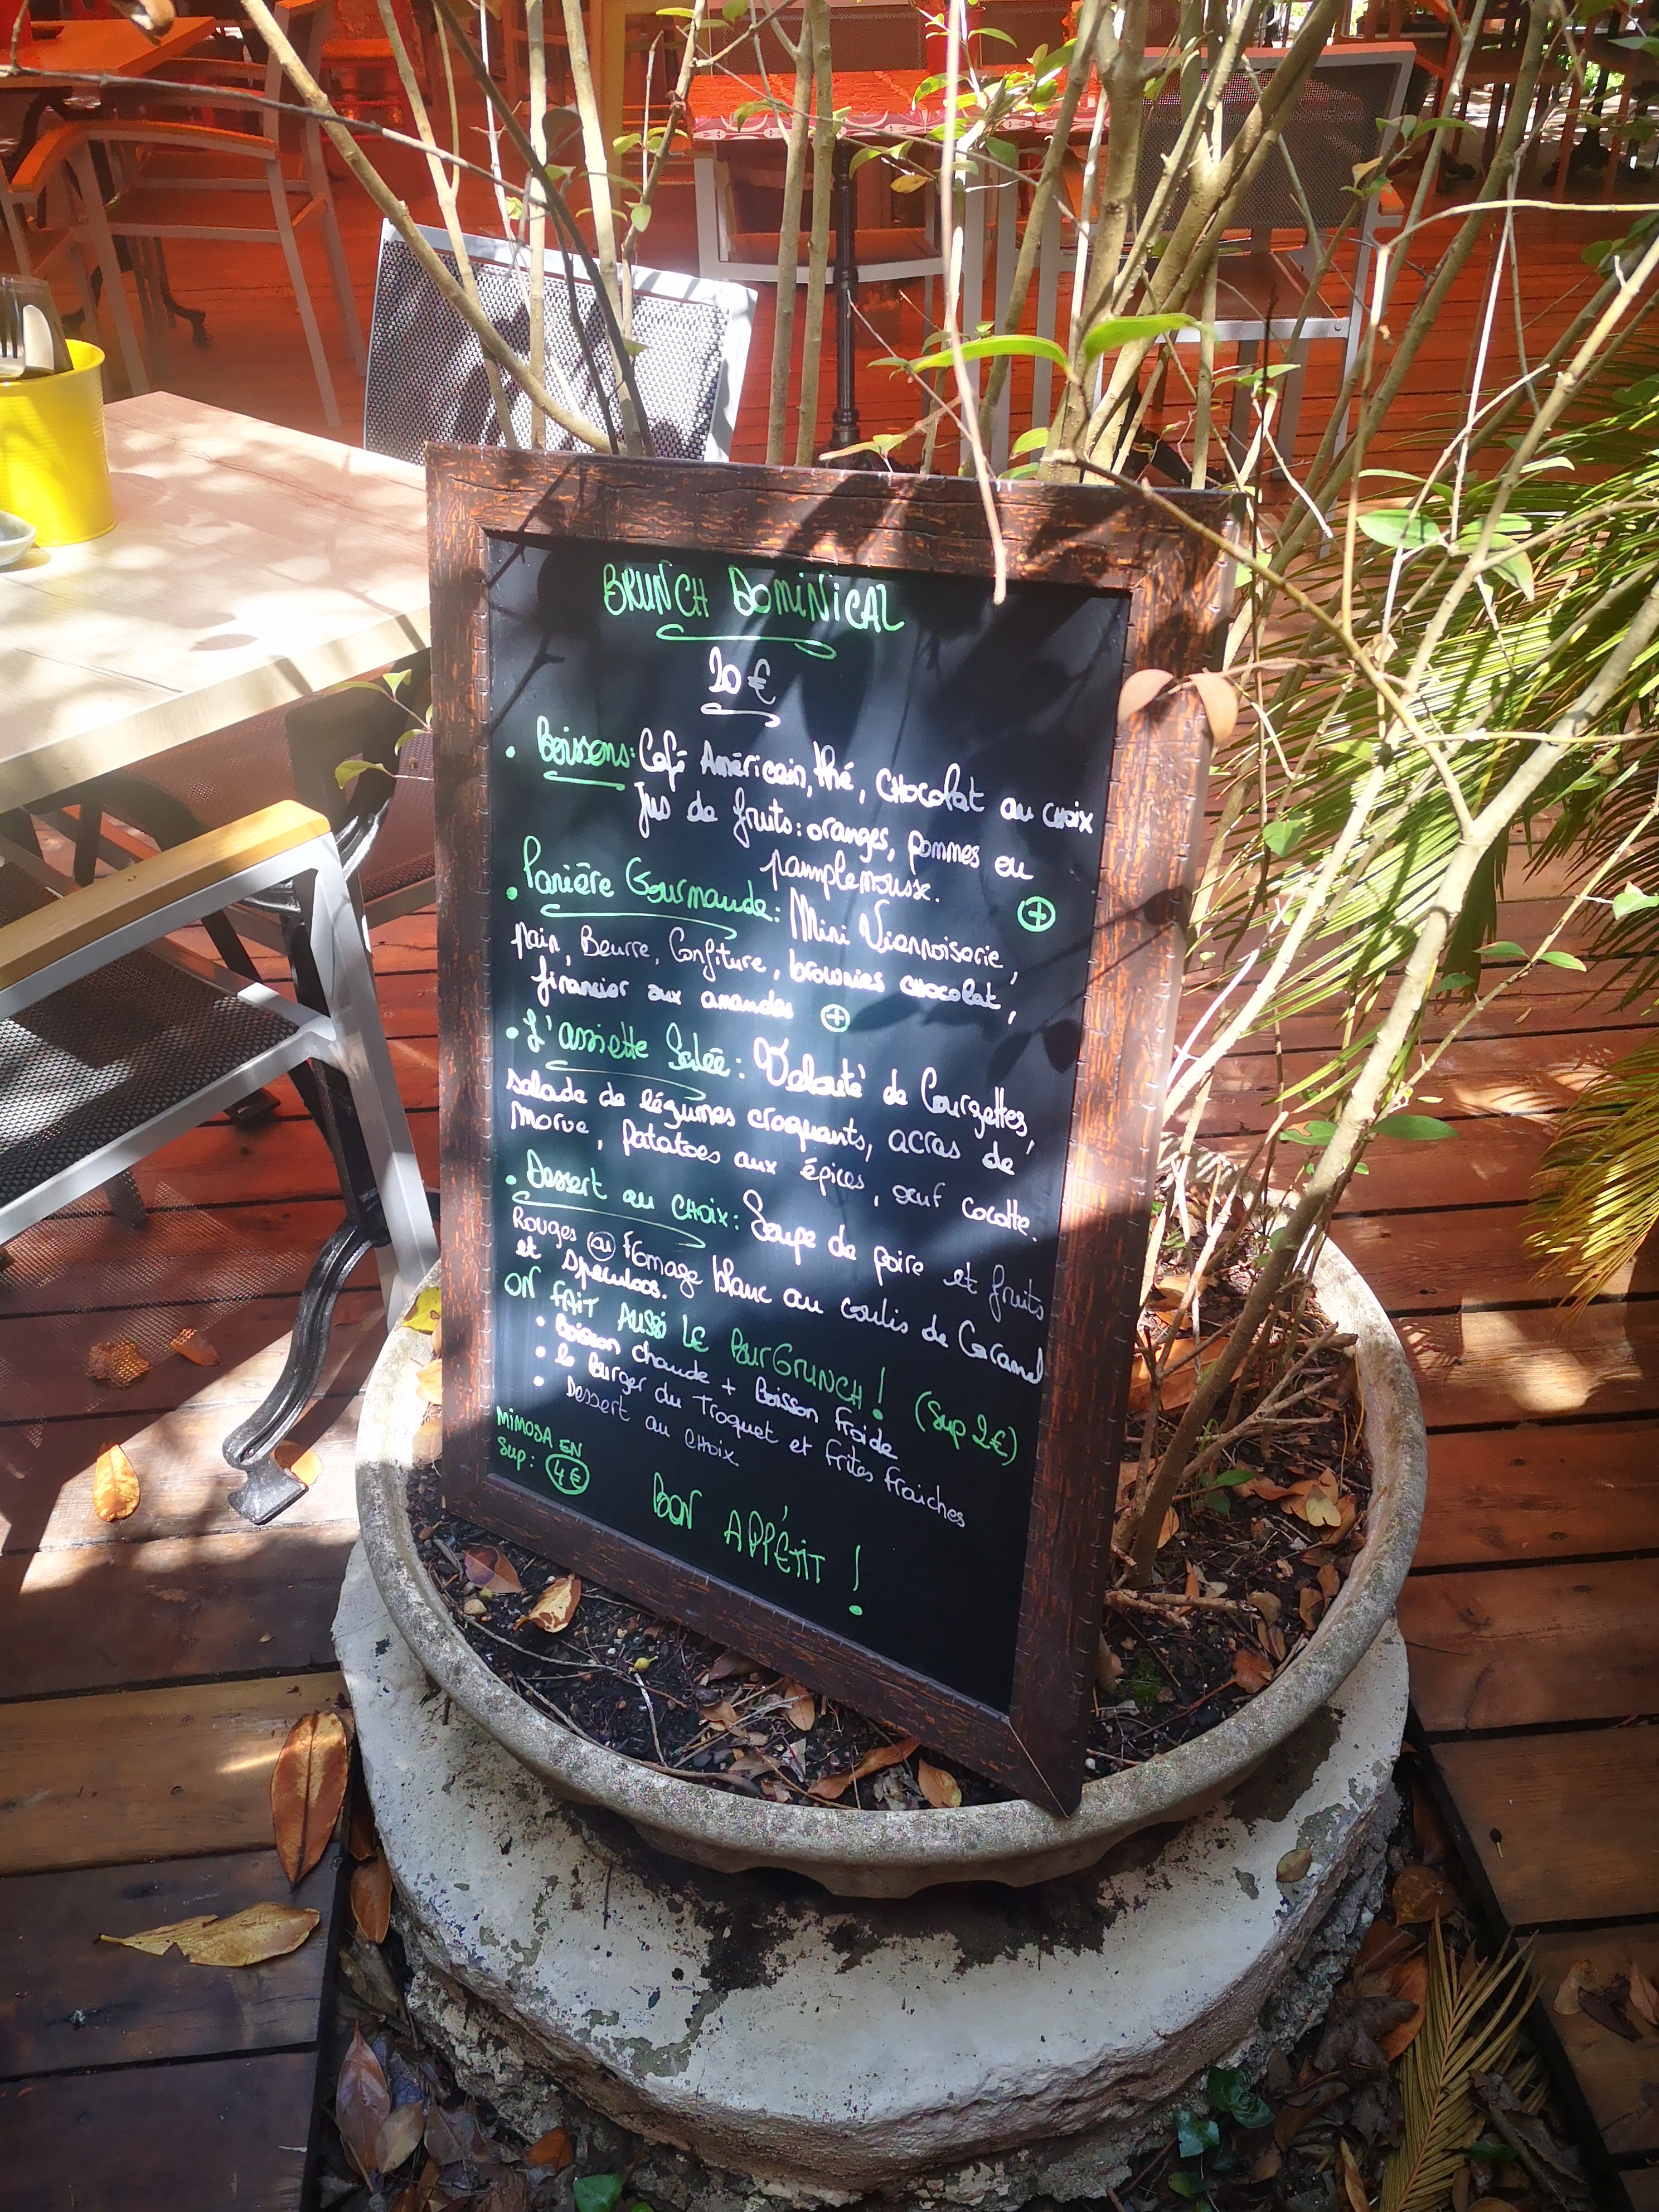 BRUNCH DOMINICAL
20 €
• Boissons: Café Américain, thé, CHocolat au cHoix
Jus de fruits: oranges, pommes ou
pamplemousse. +
• Panière Gourmande: Mini Viennoiserie,
pain, Beurre, Confiture, brownies cHocolat,
financier aux amandes +
• L'assiette Salée: Velouté de Courgettes,
salade de légumes croquants, acras de
Morue, Patatoes aux épices, œuf cocotte.
• Dessert au CHoix: Soupe de poire et fruits
Rouges ou Fromage blanc au coulis de Caramel
et Speculoos.
ON FAIT AUSSI LE BURGRUNCH! (Sup 2€)
• Boisson chaude + Boisson Froide
• Le Burger du Troquet et Frites Fraiches
• Dessert au CHoix
MiMOSA EN
Sup: 4€
BON APPÉTIT !